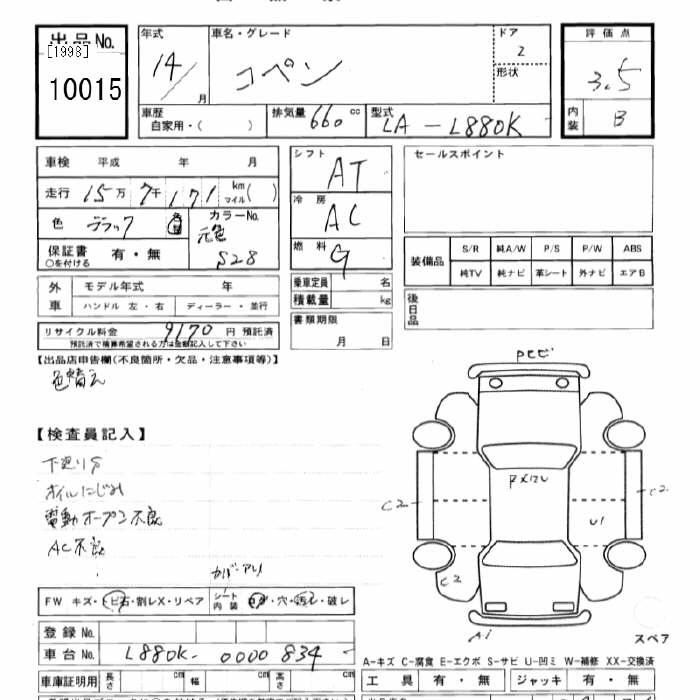 出品No.
[1998]
10015
年式
14/
月
車名・グレード
コペン
ドア
2
形状
評価点
3.5
内装
B
車歴
自家用・( )
排気量 660 cc
型式 LA-L880K
車検 平成 年 月
走行 15万 7千 171 km マイル( )
色 ブラック
色替
カラーNo.
元色
S28
保証書 有・無
○を付ける
外車
モデル年式 年
ハンドル 左・右
ディーラー・並行
リサイクル料金 9170 円 預託済
預託済で精算希望される方は金額記入して下さい
シフト
AT
冷房
AC
燃料
G
乗車定員 名
積載量 kg
書類期限
月 日
セールスポイント
装備品
S/R 純A/W P/S P/W ABS
純TV 純ナビ 革シート 外ナビ エアB
後日品
【出品店申告欄(不良箇所・欠品・注意事項等)】
色替え
【検査員記入】
下廻りS
オイルにじみ
電動オープン不良
AC不良
カバーアリ
FW キズ・トビ石・割レX・リペア
シート内装
コゲ・穴・汚レ・破レ
登録No.
車台No. L880K-0000834
車庫証明用
長さ cm
幅 cm
高さ cm
PCビ
C2
C2
U1
C2
A1
スペア
A-キズ C-腐食 E-エクボ S-サビ U-凹ミ W-補修 XX-交換済
工具 有・無
ジャッキ 有・無